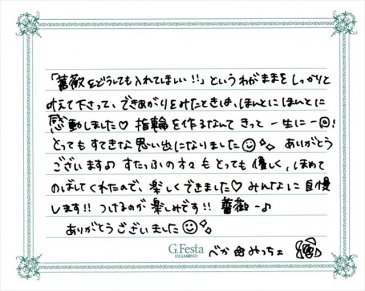 「薔薇をどうしても入れてほしい!!」というわがままをしっかりと
叶えて下さって、できあがりをみたときは、ほんとにほんとに
感動しました♡ 指輪を作るなんてきっと一生に一回!
とってもすてきな思い出になりました☺ ありがとう
ございます♪ すたっふの方々もとっても優しく、ほめて
のばしてくれたので、楽しくできました♡ みんなに自慢
します!! つけるのが楽しみです!! 薔薇〜♪
ありがとうございました☺
G.Festa
DIAMOND
べか みっちょ